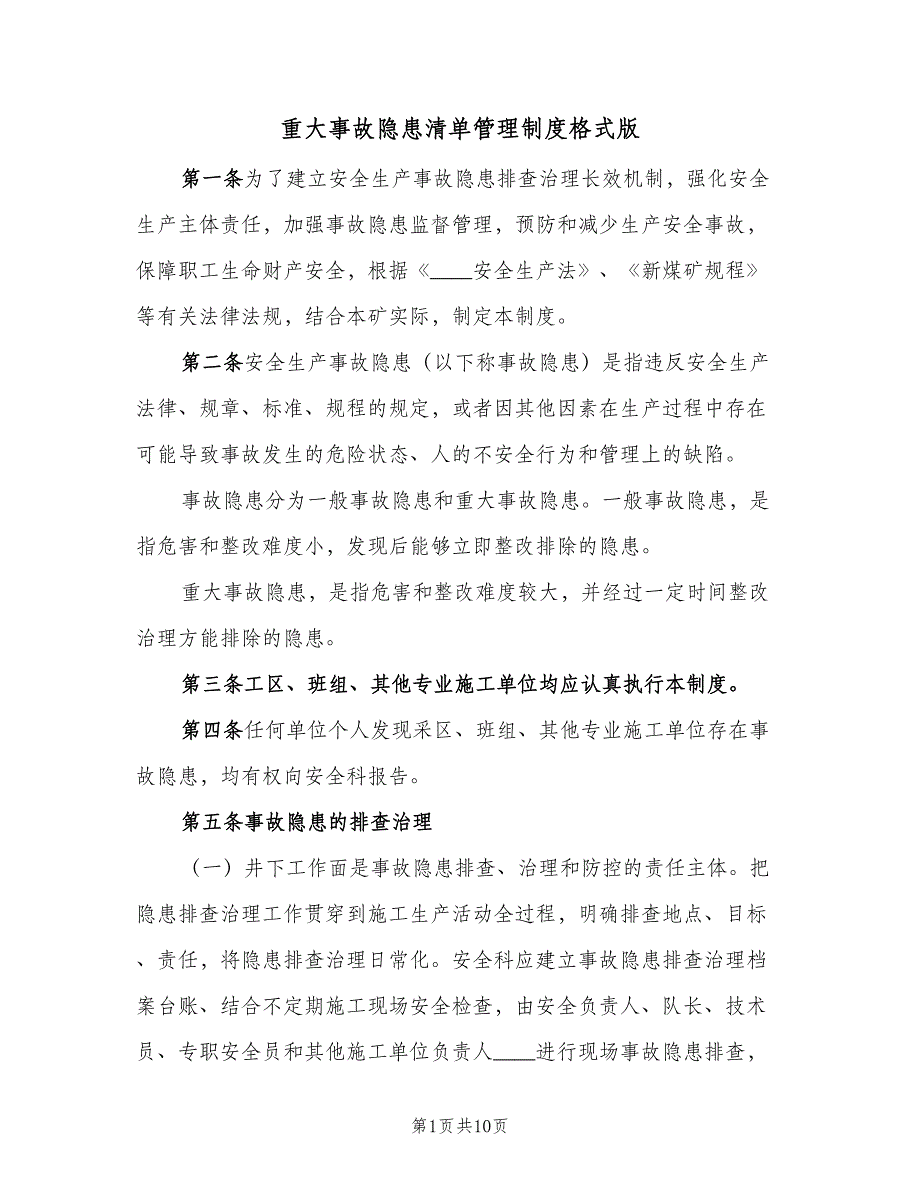 重大事故隐患清单管理制度格式版
第一条为了建立安全生产事故隐患排查治理长效机制，强化安全
生产主体责任，加强事故隐患监督管理，预防和减少生产安全事故，
保障职工生命财产安全，根据《____安全生产法》、《新煤矿规程》
等有关法律法规，结合本矿实际，制定本制度。
第二条安全生产事故隐患（以下称事故隐患）是指违反安全生产
法律、规章、标准、规程的规定，或者因其他因素在生产过程中存在
可能导致事故发生的危险状态、人的不安全行为和管理上的缺陷。
事故隐患分为一般事故隐患和重大事故隐患。一般事故隐患，是
指危害和整改难度小，发现后能够立即整改排除的隐患。
重大事故隐患，是指危害和整改难度较大，并经过一定时间整改
治理方能排除的隐患。
第三条工区、班组、其他专业施工单位均应认真执行本制度。
第四条任何单位个人发现采区、班组、其他专业施工单位存在事
故隐患，均有权向安全科报告。
第五条事故隐患的排查治理
（一）井下工作面是事故隐患排查、治理和防控的责任主体。把
隐患排查治理工作贯穿到施工生产活动全过程，明确排查地点、目标
、责任，将隐患排查治理日常化。安全科应建立事故隐患排查治理档
案台账、结合不定期施工现场安全检查，由安全负责人、队长、技术
员、专职安全员和其他施工单位负责人____进行现场事故隐患排查，
第1页共10页